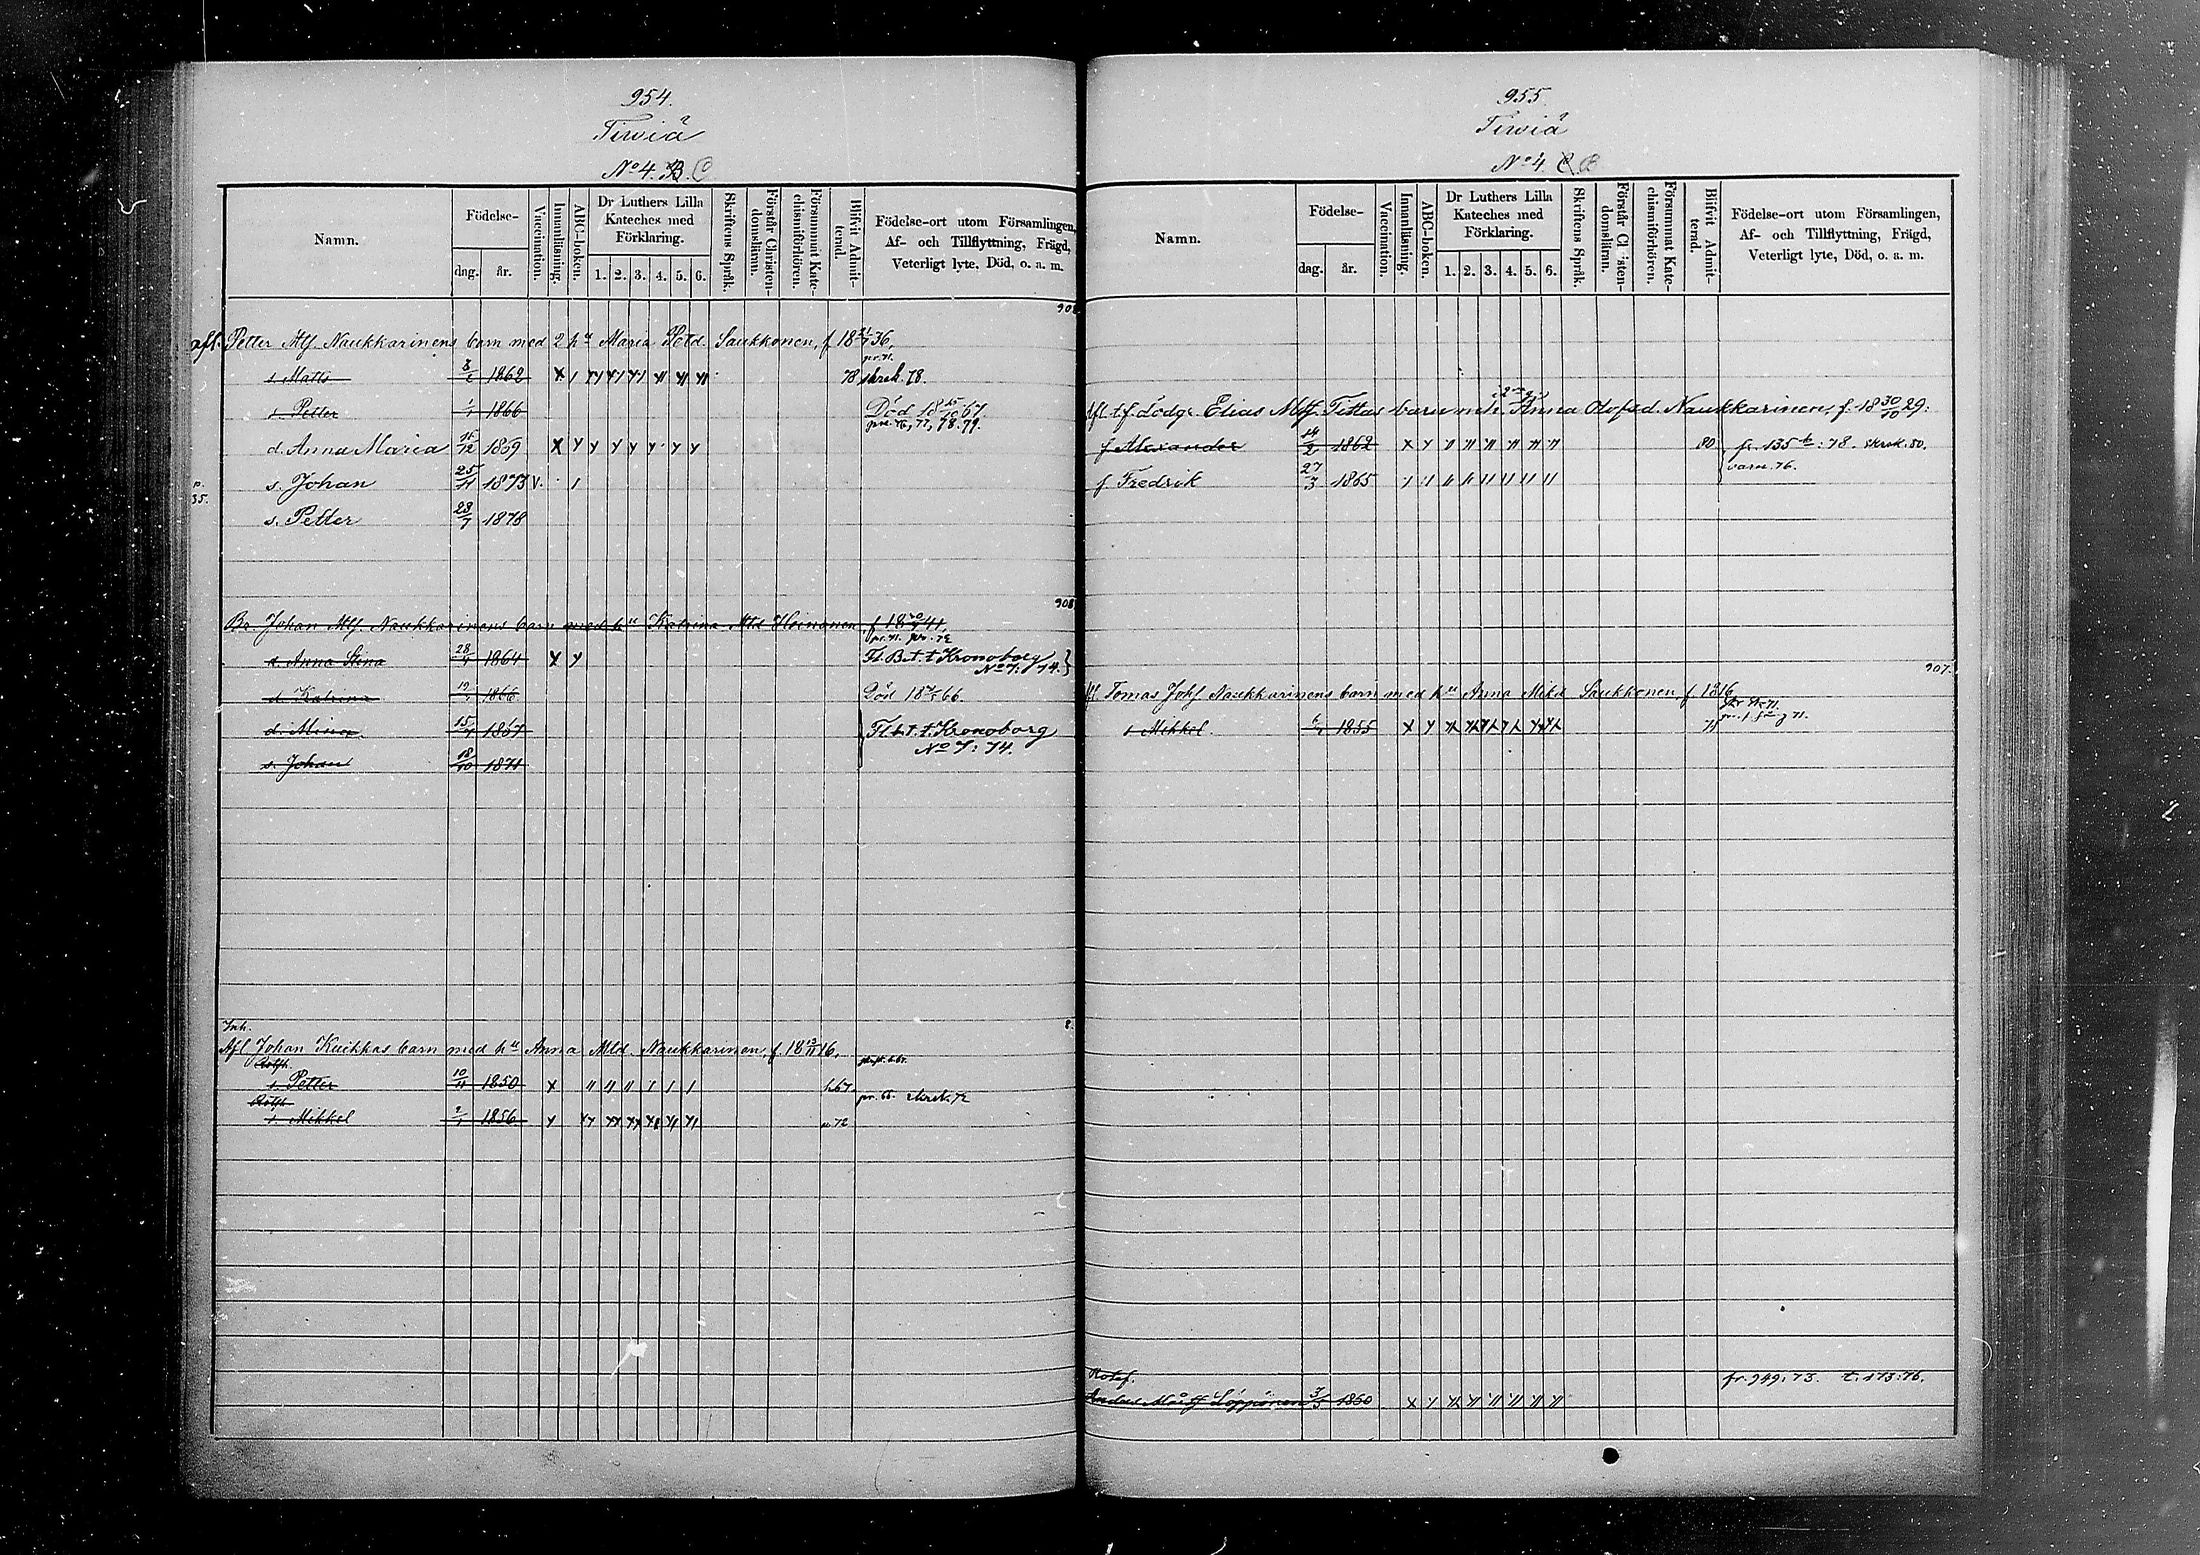 954.
Tiwiä
No 4. B. C
Namn.
Födelse-
dag. år.
Vaccination.
Innanläsning.
ABC-boken.
Dr Luthers Lilla
Kateches med
Förklaring.
1. 2. 3. 4. 5. 6.
Skriftens Språk.
Förstår Christen-
domsläran.
Försummat Kate-
chismiförhören.
Blifvit Admit-
terad.
Födelse-ort utom Församlingen,
Af- och Tillflyttning, Frägd,
Veterligt lyte, Död, o. a. m.
908
afl. Petter Mtf. Naukkarinens barn med 2 hu Maria Petd. Saukkonen, f. 18 36
pr. 71.
s. Matts 1862 78 skrek. 78.
s. Petter 1/1 1866 Död 18 67.
77, 78. 79.
d. Anna Maria 15/12 1869
p.
35.
s. Johan 25/11 1873 v.
s. Petter 23/7 1878
908
Bo. Johan Mtf. Naukkarinens barn med hu Katrina Mtd Heinonen, f. 18 41.
pr. 71.
d. Anna Stina 1864 Fl. B. t. t. Kronoborg
No 7: 74.
d. Katrina 1866 Död 18 66.
d. Mina 1867 Fl. b. t. t. Kronoborg
No 7: 74.
s. Johan 18/10 1871
Inh.
Afl. Johan Kuikkas barn med hu Anna Mtd. Naukkarinen, f. 18 16.
s. Petter 10/11 1850 67.
pr. 68. skrek. 72
s. Mikkel 1856 72
955.
Tiwiä
No 4.
Namn.
Födelse-
dag. år.
Vaccination.
Innanläsning.
ABC-boken.
Dr Luthers Lilla
Kateches med
Förklaring.
1. 2. 3. 4. 5. 6.
Skriftens Språk.
Förstår Christen-
domsläran.
Försummat Kate-
chismiförhören.
Blifvit Admit-
terad.
Födelse-ort utom Församlingen,
Af- och Tillflyttning, Frägd,
Veterligt lyte, Död, o. a. m.
Afl. t. f. Lodge. Elias Mtf. Tittas barn m. h. Anna Olofsd. Naukkarinen, f. 18 30/10 29.
f Alexander 14/2 1862 80 fr. 135 : 78. skrek. 80.
f. Fredrik 27/3 1865 76.
907.
Tomas Johf Naukkarinens barn med hu Anna Mikd Saukkonen, f. 1816
s Mikkel. 1855 71
fr. 949: 73. t. 173: 76.
Löppönen 3/3 1860